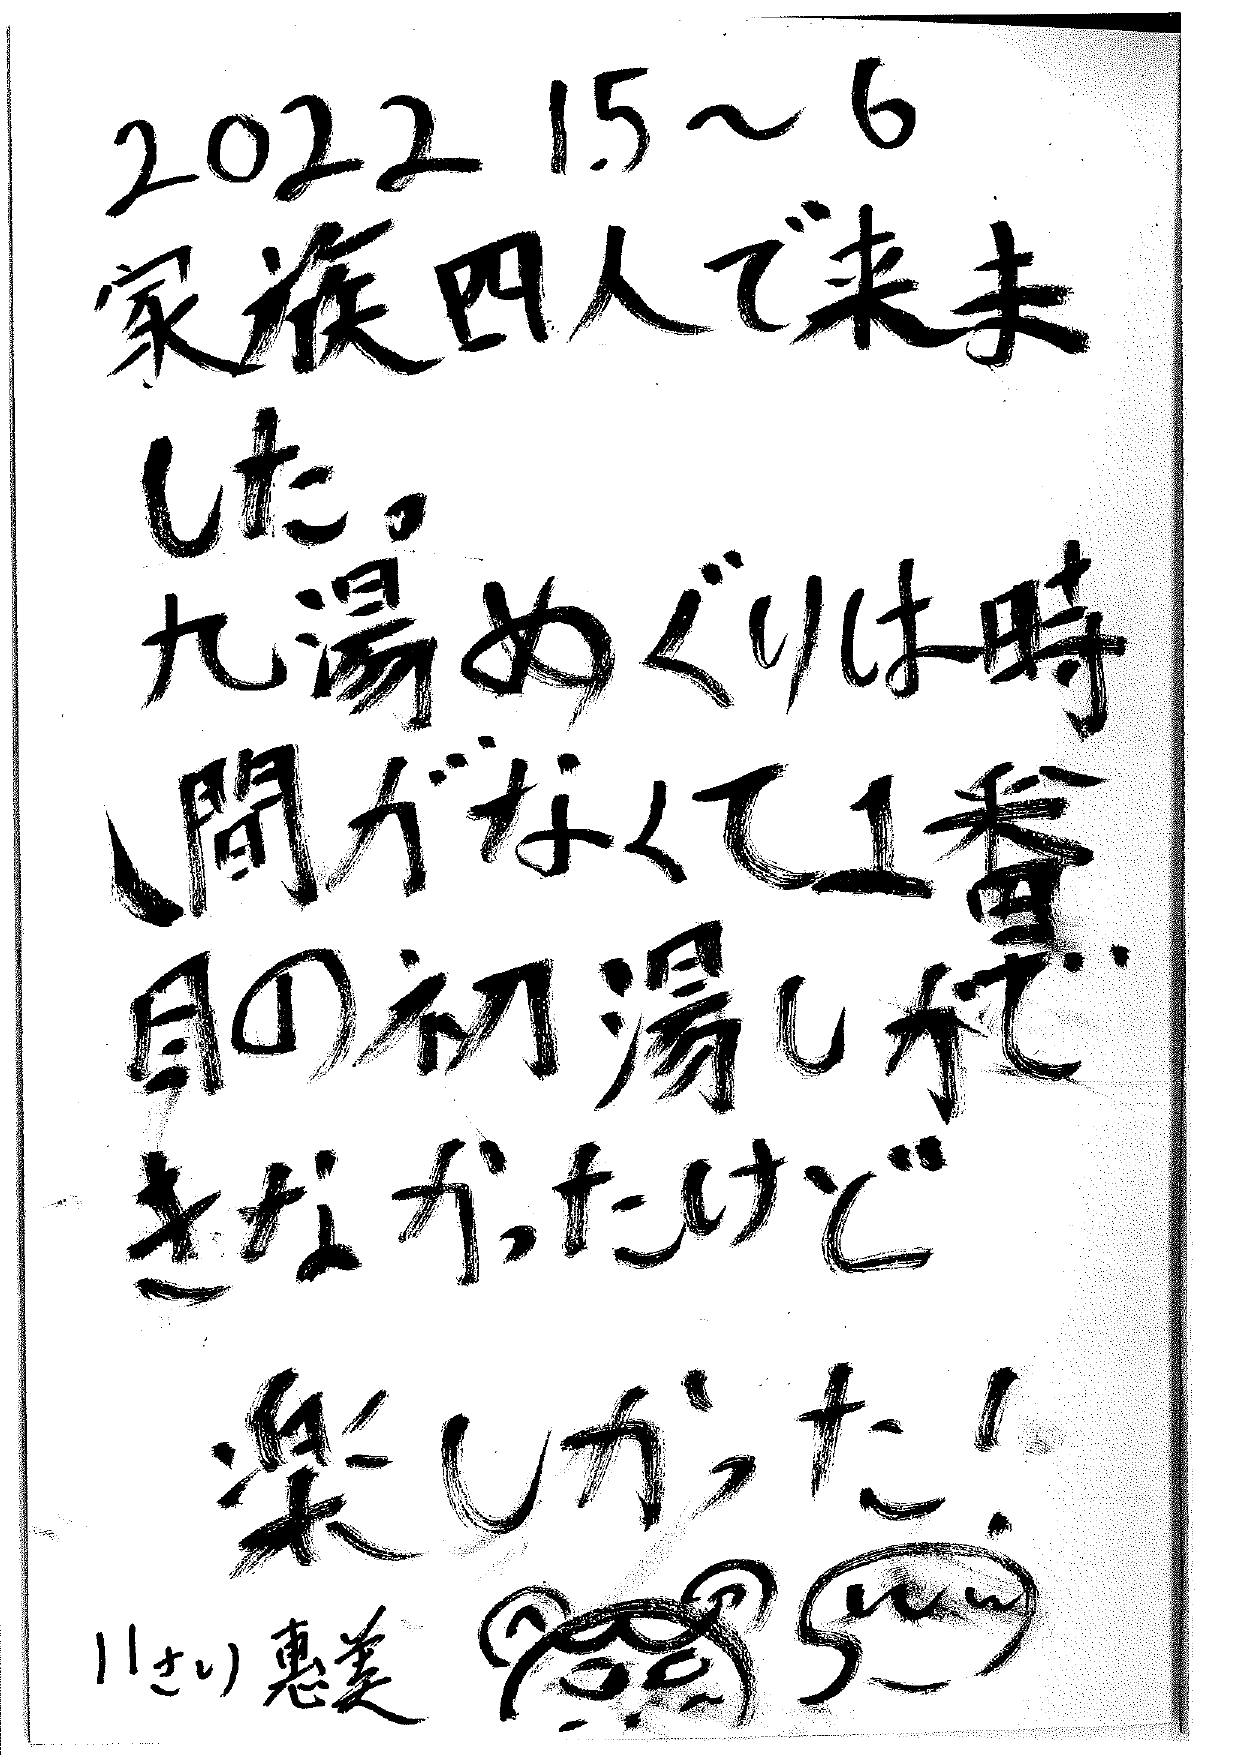 2022 1.5～6
家族四人で来ま
した。
九湯めぐりは時
間がなくて1番
目の初湯しかで
きなかったけど
楽しかった!
11さい 恵美